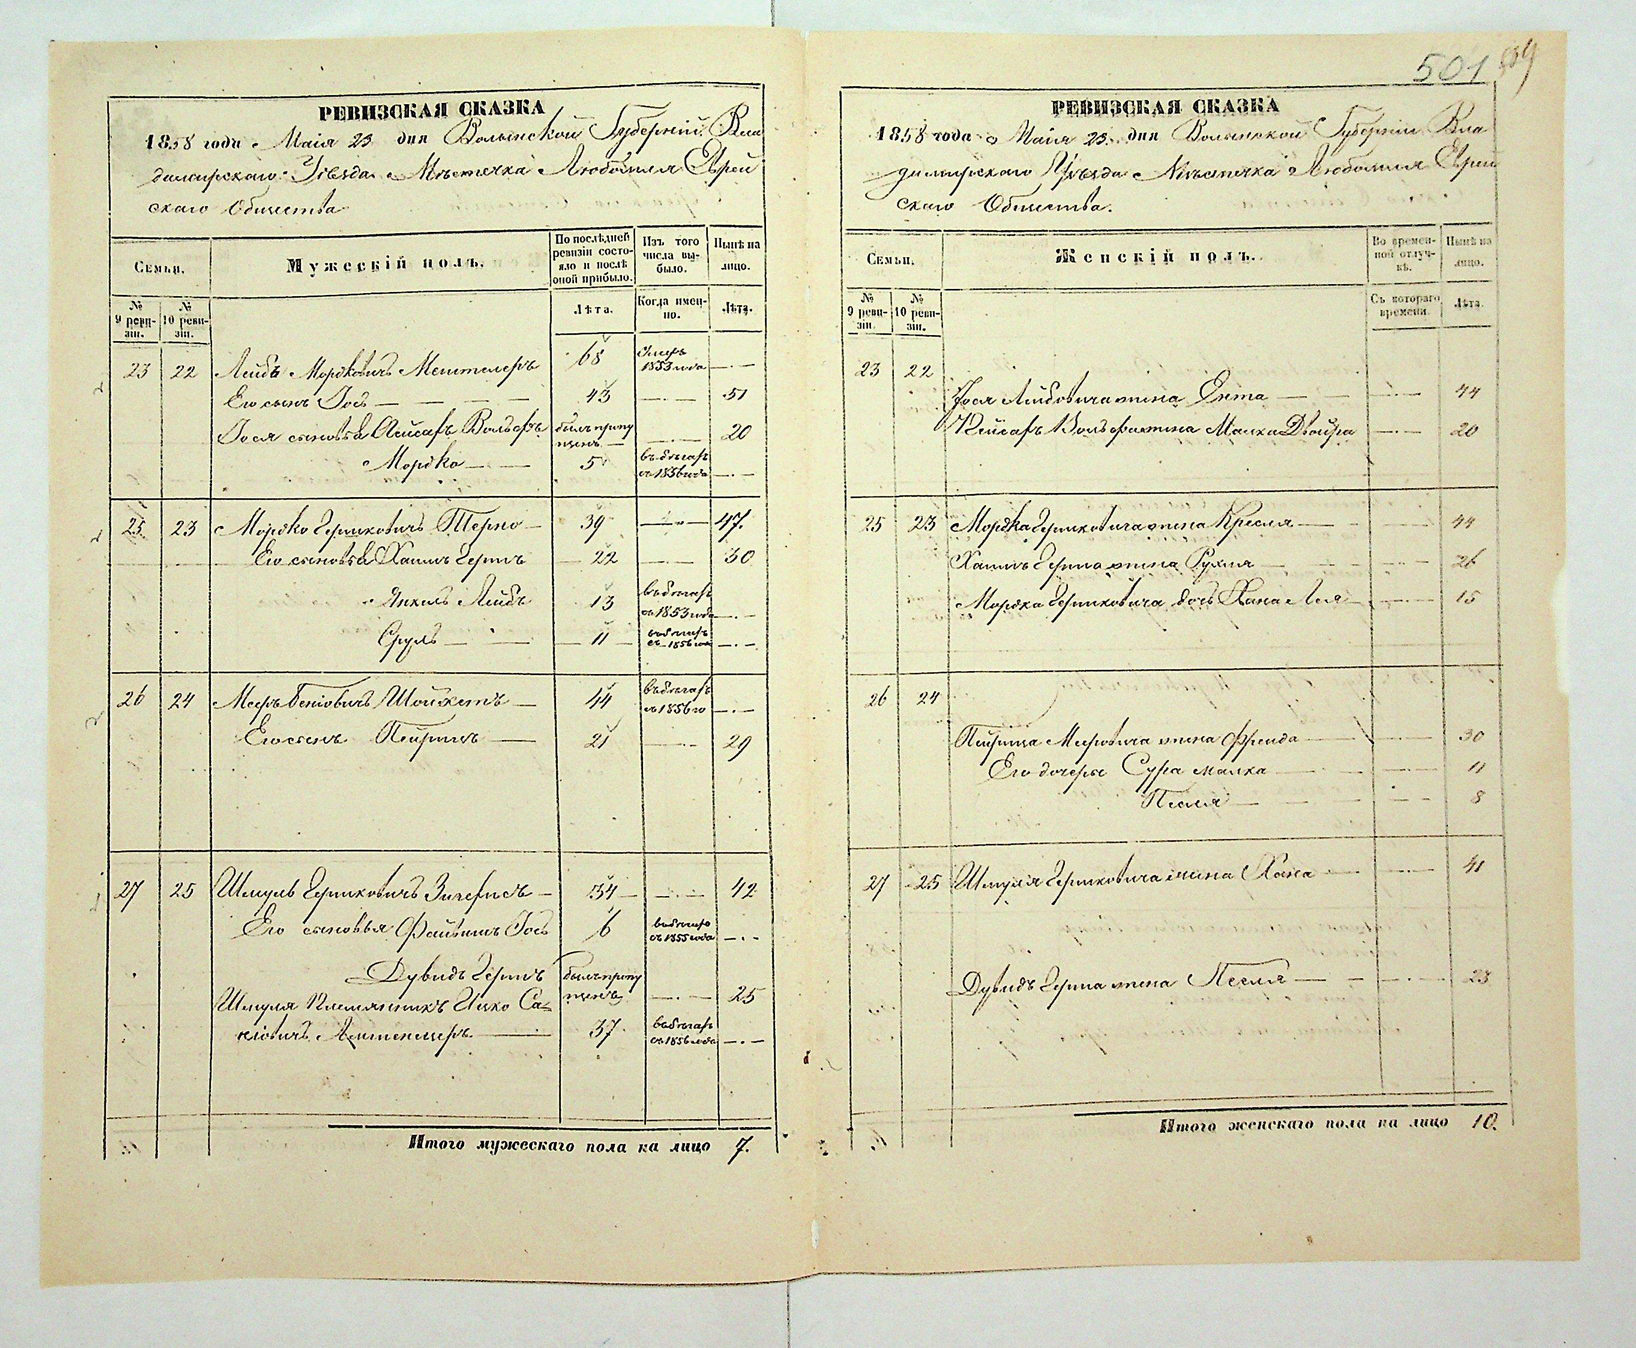 501
РЕВИЗСКАЯ СКАЗКА
1858 года Маія 23 дня Волынской Губерніи Вла
димирскаго Уѣзда Мѣстечка Любомля Еврей
скаго Общества
Семьи.
Мужескій полъ.
По послѣдней ревизіи состояло и послѣ оной прибыло.
Изъ того числа выбыло.
Нынѣ на лицо.
№ 9 ревизіи.
№ 10 ревизіи.
Лѣта.
Когда именно.
Лѣта.
23 22 Лейба Мордковичъ 68 Умеръ 1853 года —
Его сынъ Іось — 43 — 51
Іося сыновья Лейсаръ Вольфъ былъ пропущенъ — 20
Мордко — 5 въ бѣгахъ съ 1856 года —
25 23 Мордко Гершковичъ Терно — 39 — 47.
Его сыновья Хаимъ Гершъ 22 — 30
Янкель Лейбъ 13 въ бѣгахъ съ 1853 года —
Сруль — 11 въ бѣгахъ съ 1856 года —
26 24 Мееръ Шойхетъ — 44 въ бѣгахъ съ 1856 го —
Его сынъ Пейришъ — 21 — 29
27 25 Шмуль Гершковичъ — 34 — 42
Его сыновья Файвишъ Іось 6 въ бѣгахъ съ 1855 года —
Дувидъ Гершъ былъ пропущенъ — 25
Шмуля Племянникъ Ицко Са
кіовичъ — 37 въ бѣгахъ съ 1856 года —
Итого мужескаго пола на лицо 7.
РЕВИЗСКАЯ СКАЗКА
1858 года Маія 23 дня Волынской Губерніи Вла
димирскаго Уѣзда Мѣстечка Любомля Еврей
скаго Общества.
Семьи.
Женскій полъ.
Во временной отлучкѣ.
Нынѣ на лицо.
№ 9 ревизіи.
№ 10 ревизіи.
Съ котораго времени.
Лѣта.
23 22
Іося Лейбовича жена Ента — 44
Лейсаръ Вольфа жена Малка Двойра — 20
25 23 Мордка Гершковича жена Кресля — 44
Хаимъ Герша жена Рухля — 26
Мордка Гершковича дочь Хана Лея — 15
26 24
Пейриша Мееровича жена Фрейда — 30
Его дочери Сура малка — 11
Песля — 8
27 25 Шмуля Гершковича жена Хана — 41
Дувидъ Герша жена Песля — 23
Итого женскаго пола на лицо 10.